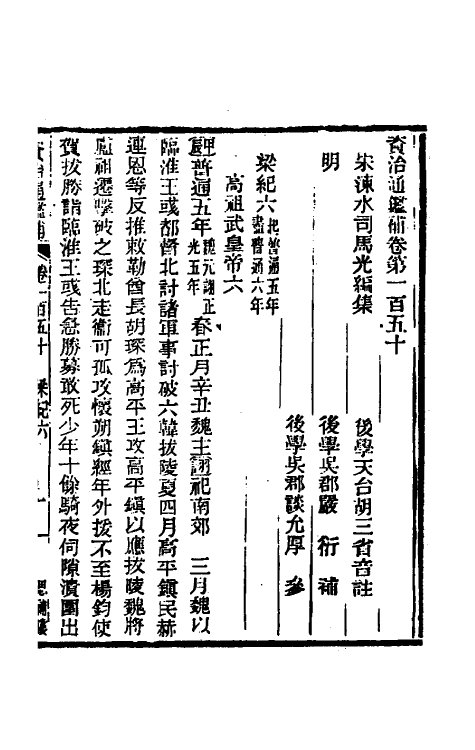 資治通鑑補卷第一百五十
宋涑水司馬光編集　後學天台胡三省音註
明　後學吳郡嚴　衍　補
後學吳郡談允厚　參
梁紀六起普通五年盡普通六年
高祖武皇帝六
普通五年魏元詡正光五年春正月辛丑魏主詡祀南郊　三月魏以
臨淮王彧都督北討諸軍事討破六韓拔陵夏四月高平鎮民赫
連恩等反推敕勒酋長胡琛為高平王攻高平鎮以應拔陵魏將
盧祖遷擊破之琛北走衞可孤攻懷朔鎮經年外援不至楊鈞使
賀拔勝詣臨淮王彧告急勝募敢死少年十餘騎夜伺隙潰圍出
資治通鑑補　卷一百五十　梁紀六